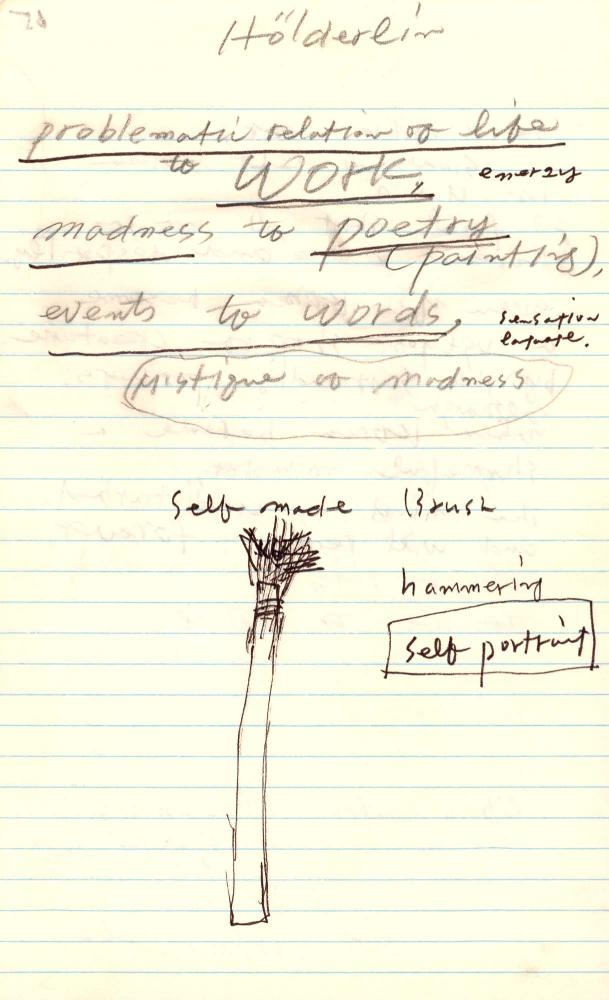 Hölderlin
problematic relation of life
to Work, energy
madness to poetry
(painting),
events to words, sensation
language.
Mistique of madness
Self made Brush
hammering
Self portrait